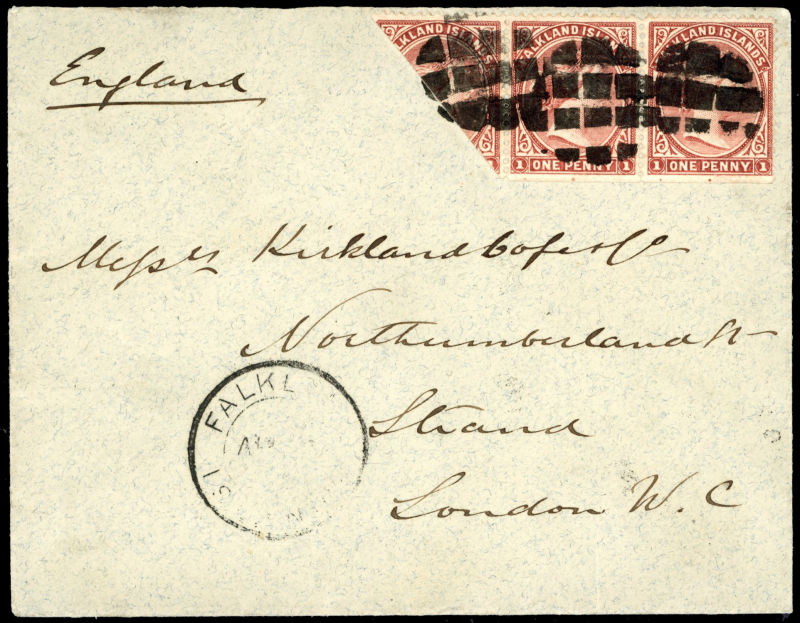 England
FALKLAND ISLANDS
1 ONE PENNY 1
FALKLAND ISLANDS
1 ONE PENNY 1
Messrs Kirkland Cope & Co
Northumberland St
Strand
London W.C
FALKL